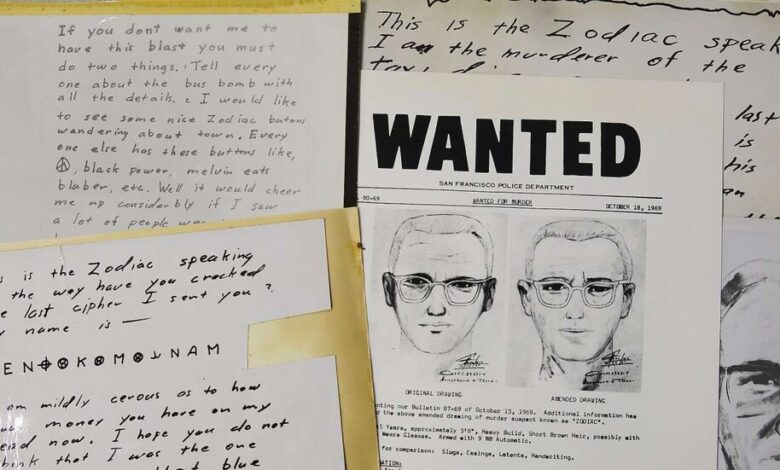 If you dont want me to
have this blast you must
do two things. 1 Tell every
one about the bus bomb with
all the details. 2 I would like
to see some nice Zodiac butons
wandering about town. Every
one else has these buttons like,
☮, black power, melvin eats
bluber, etc. Well it would cheer
me up considerbly if I saw
a lot of people
is the Zodiac speaking
the way have you cracked
last cipher I sent you?
name is —
EN⊕⊗K⊗M⊗ NAM
am mildly cerous as to how
money you have on my
now. I hope you do not
that I was the one
blue
This is the Zodiac speak
I am the murderer of the
last
is
his
an
WANTED
SAN FRANCISCO POLICE DEPARTMENT
90-69 WANTED FOR MURDER OCTOBER 18, 1969
ORIGINAL DRAWING AMENDED DRAWING
our Bulletin 87-69 of October 13, 1969. Additional information has
the above amended drawing of murder suspect known as "ZODIAC".
Years, approximately 5'8", Heavy Build, Short Brown Hair, possibly with
Wears Glasses. Armed with 9 MM Automatic.
for comparison: Slugs, Casings, Latents, Handwriting.